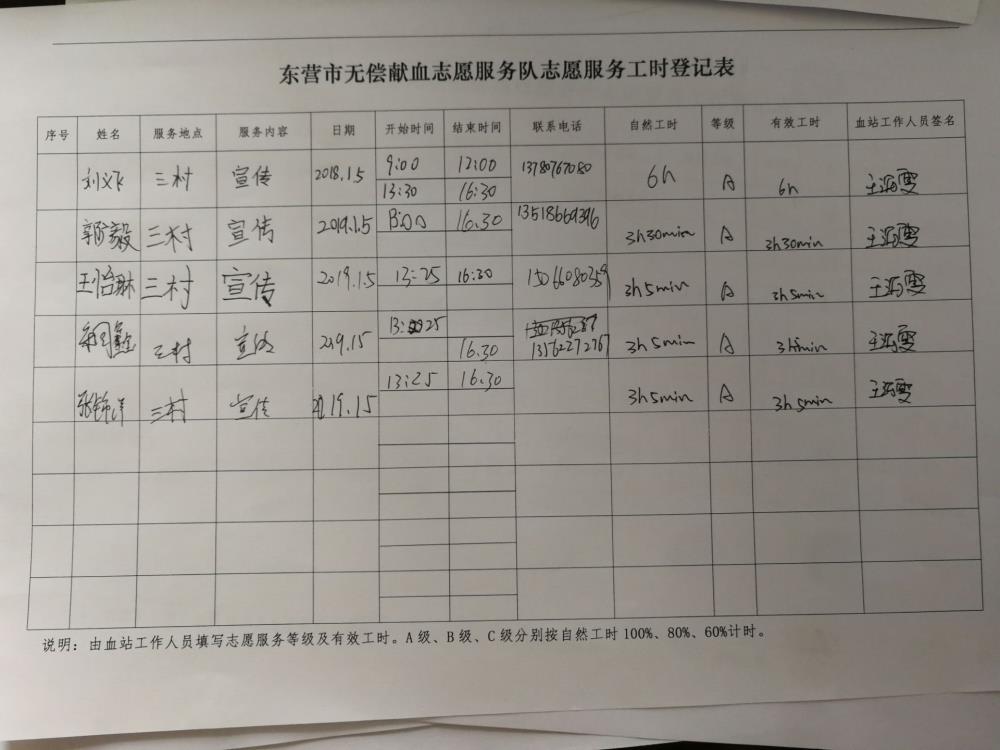 东营市无偿献血志愿服务队志愿服务工时登记表
序号 姓名 服务地点 服务内容 日期 开始时间 结束时间 联系电话 自然工时 等级 有效工时 血站工作人员签名
三村 宣传 2018.1.5 9:00 12:00 13780767080 6h A 6h
13:30 16:30
郭毅 三村 宣传 2019.1.5 16.30 13518669396 3h30min A 3h30min
王怡琳 三村 宣传 2019.1.5 13:25 16:30 15066080359 3h5min A 3h5min
三村 宣传 219.15 13562272767 3h5min A
16.30
三村 宣传 2019.15 13:25 16.30 3h5min A 3h5min
说明：由血站工作人员填写志愿服务等级及有效工时。A级、B级、C级分别按自然工时100%、80%、60%计时。